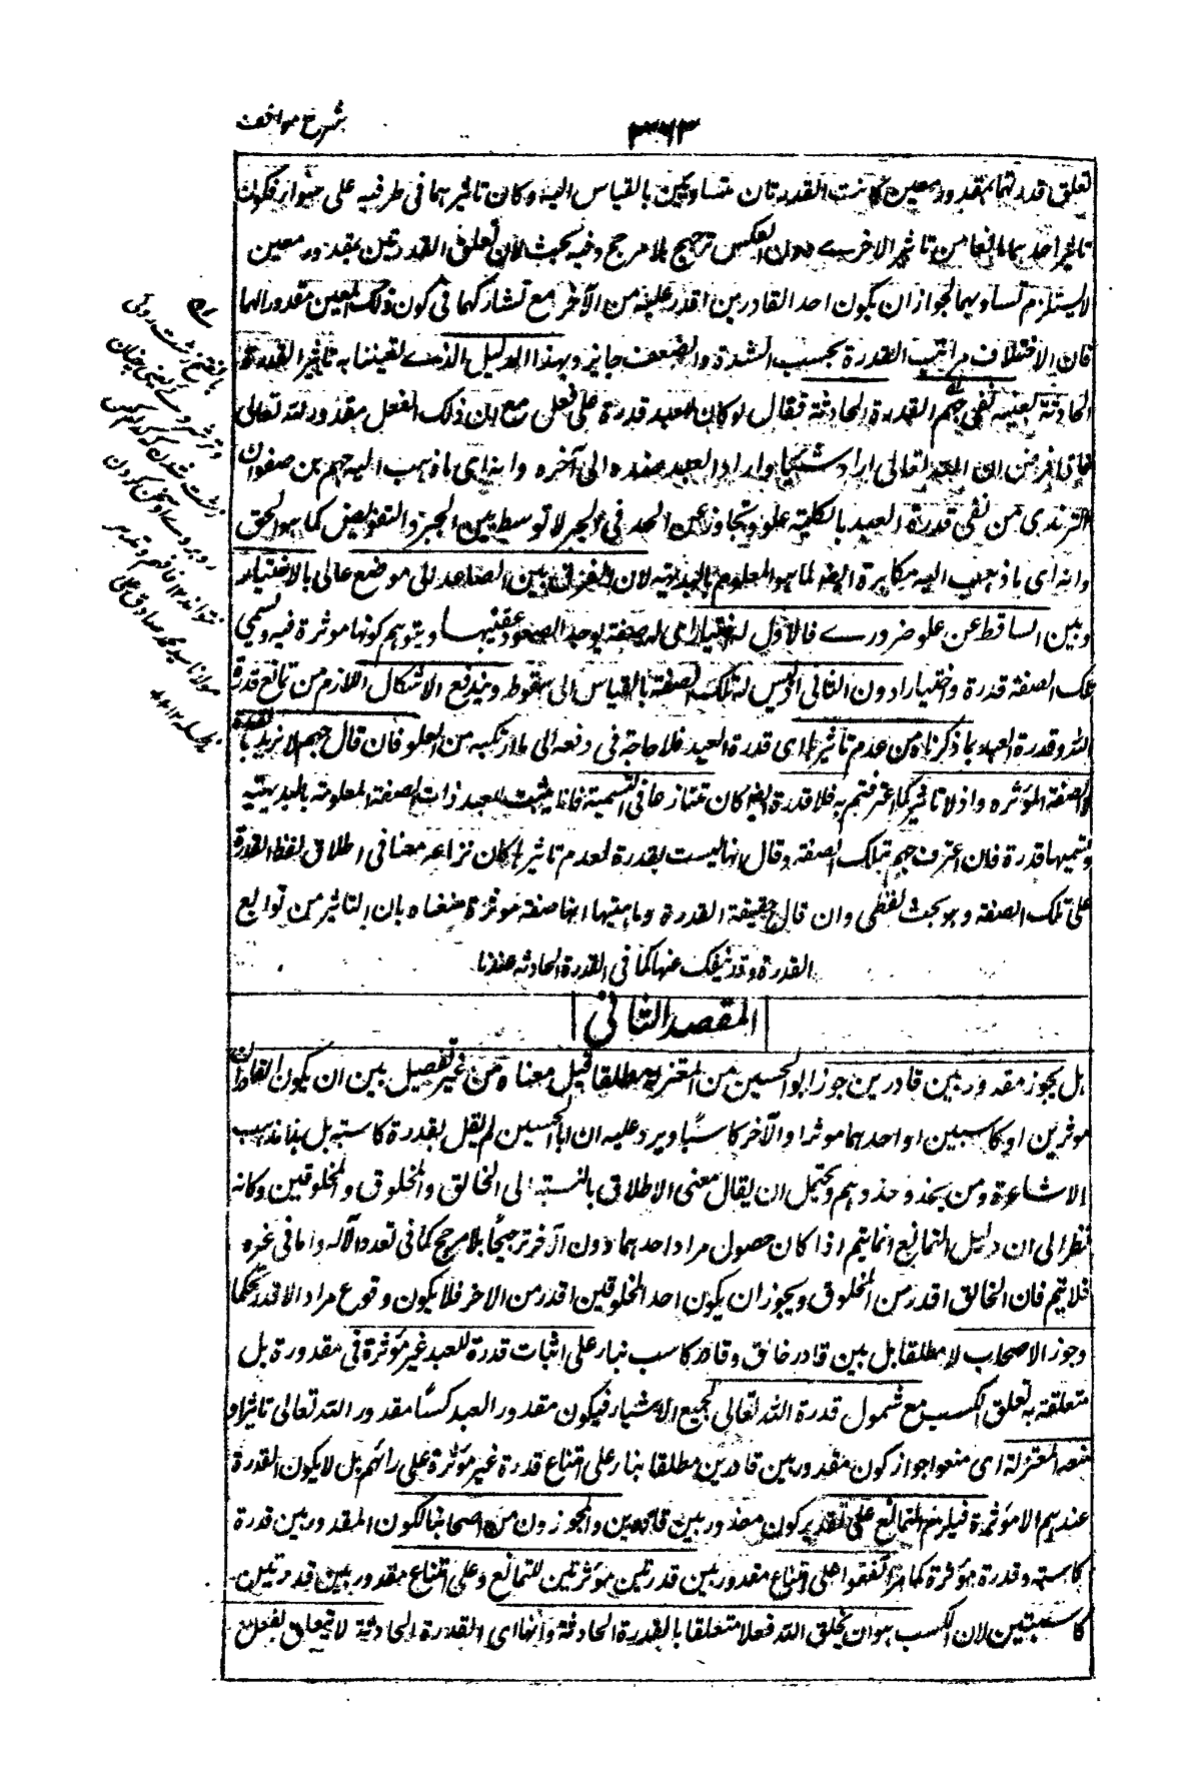 شرح مواقف
٣٦٣
تعلق قدرتهما بمقدور معين كانت القدرتان متساويتين بالقياس اليه وكان تاثيرهما فى طرفيه على سواء فكون
تاثير احدهما مانعا من تاثير الاخرى دون العكس ترجيح بلا مرجح وفيه بحث لان تعلق القدرتين بمقدور معين
لا يستلزم تساويهما لجواز ان يكون احد القادرين اقدر عليه من الآخر مع تشاركهما فى كون ذلك المعين مقدورا لهما
فان الاختلاف مراتب القدرة بحسب الشدة والضعف جايز وبهذا الدليل الذى نفينا به تاثير القدرة
الحادثة بعينه نفى جهم القدرة الحادثة فقال لو كان للعبد قدرة على فعل مع ان ذلك الفعل مقدور لله تعالى
فاذا فرض ان الله تعالى اراد شيئا واراد العبد ضده الى آخره وانه اى ما ذهب اليه جهم بن صفوان
الترمذى من نفى قدرة العبد بالكلية غلو وتجاوز عن الحد فى الجبر لا توسط بين الجبر والتفويض كما هو الحق
وانه اى ما ذهب اليه مكابرة ايضا لما هو المعلوم بالبديهة لان الفرق بين الصاعد الى موضع عالى بالاختيار
وبين الساقط عن علو ضرورى فالاول له اختيار اى له صفة يوجد الصعود عقيبها ويتوهم كونها موثرة فيه ونسمى
تلك الصفة قدرة واختيارا دون الثانى اذ ليس له تلك الصفة بالقياس الى سقوطه ويندفع الاشكال اللازم من تمانع قدرة
الله وقدرة العبد بما ذكرناه من عدم تاثيرها اى قدرة العبد فلا حاجة فى دفعه الى ما ارتكبه من الغلو فان قال جهم لا نريد بالقدرة
الا الصفة المؤثره واذ لا تاثير كما اعترفتم به فلا قدرة ايضا كان منازعا فى التسمية فانا نثبت للعبد ذات الصفة المعلومة بالبديهية
ونسميها قدرة فان اعترف جهم بتلك الصفة وقال انها ليست بقدرة لعدم تاثيرها كان نزاعه معنا فى اطلاق لفظ القدرة
على تلك الصفة وهو بحث لفظى وان قال حقيقة القدرة وماهيتها انها صفة موثرة منعناه بان التاثير من توابع
القدرة وقد ينفك عنها كما فى القدرة الحادثة عندنا
المقصد الثانى
هل يجوز مقدور بين قادرين جوز ابو الحسين من المعتزلة مطلقا قيل معناه من غير تفصيل بين ان يكون القادران
موثرين او كاسبين او احدهما موثرا والآخر كاسبا ويرد عليه ان ابا الحسين لم يقل بقدرة كاسبة بل هذا مذهب
الاشاعرة ومن يحذو حذوهم ويحتمل ان يقال معنى الاطلاق بالنسبة الى الخالق والمخلوق والمخلوقين وكانه
نظر الى ان دليل التمانع انما يتم اذا كان حصول مراد احدهما دون آخر ترجيحا بلا مرجح كما فى تعدد الآله واما فى غيره
فلا يتم فان الخالق اقدر من المخلوق ويجوز ان يكون احد المخلوقين اقدر من الاخر فلا يكون وقوع مراد الاقدر تحكما
وجوز الاصحاب لا مطلقا بل بين قادر خالق وقادر كاسب بناء على اثبات قدرة للعبد غير مؤثرة فى مقدورة بل
متعلقة به تعلق الكسب مع شمول قدرة الله تعالى لجميع الاشياء فيكون مقدور العبد كسبا مقدور الله تعالى تاثيرا و
منعه المعتزلة اى منعوا جواز كون مقدور بين قادرين مطلقا بناء على امتناع قدرة غير مؤثرة على رائهم بل لا يكون القدرة
عندهم الا مؤثرة فيلزم التمانع على تقدير كون مقدور بين قادرين والمجوزون من اصحابنا لكون المقدور بين قدرة
كاسبة وقدرة مؤثرة كما مر اتفقوا على امتناع مقدور بين قدرتين مؤثرتين للتمانع وعلى امتناع مقدور بين قدرتين
كاسبتين لان الكسب هو ان يخلق الله فعلا متعلقا بالقدرة الحادثة وانها اى القدرة الحادثة لا تتعلق بفعل